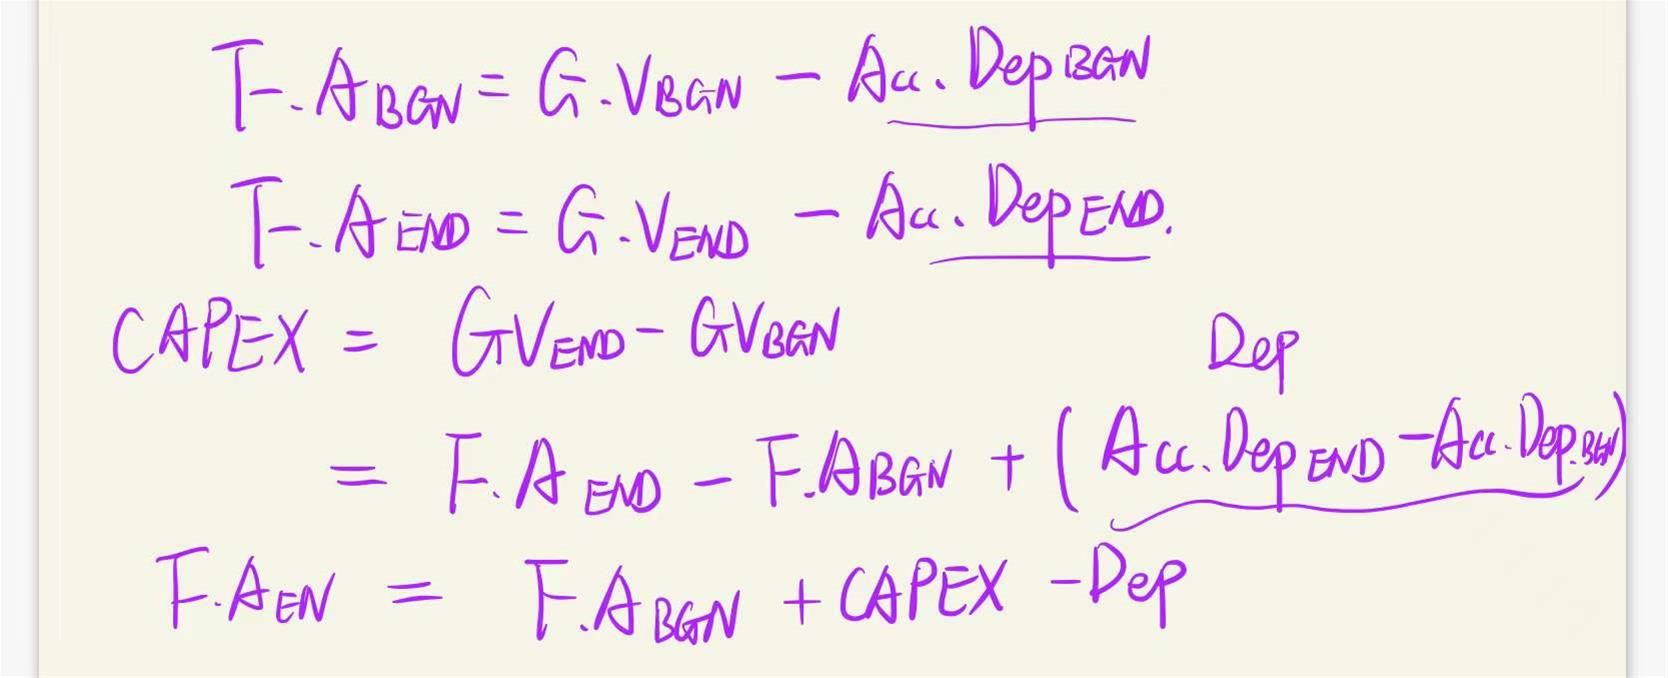 F.A BGN = G.V BGN - Acc. Dep BGN
F.A END = G.V END - Acc. Dep END.
CAPEX = GV END - GV BGN
Dep
= F.A END - F.A BGN + (Acc. Dep END - Acc. Dep. BGN)
F.A EN = F.A BGN + CAPEX - Dep